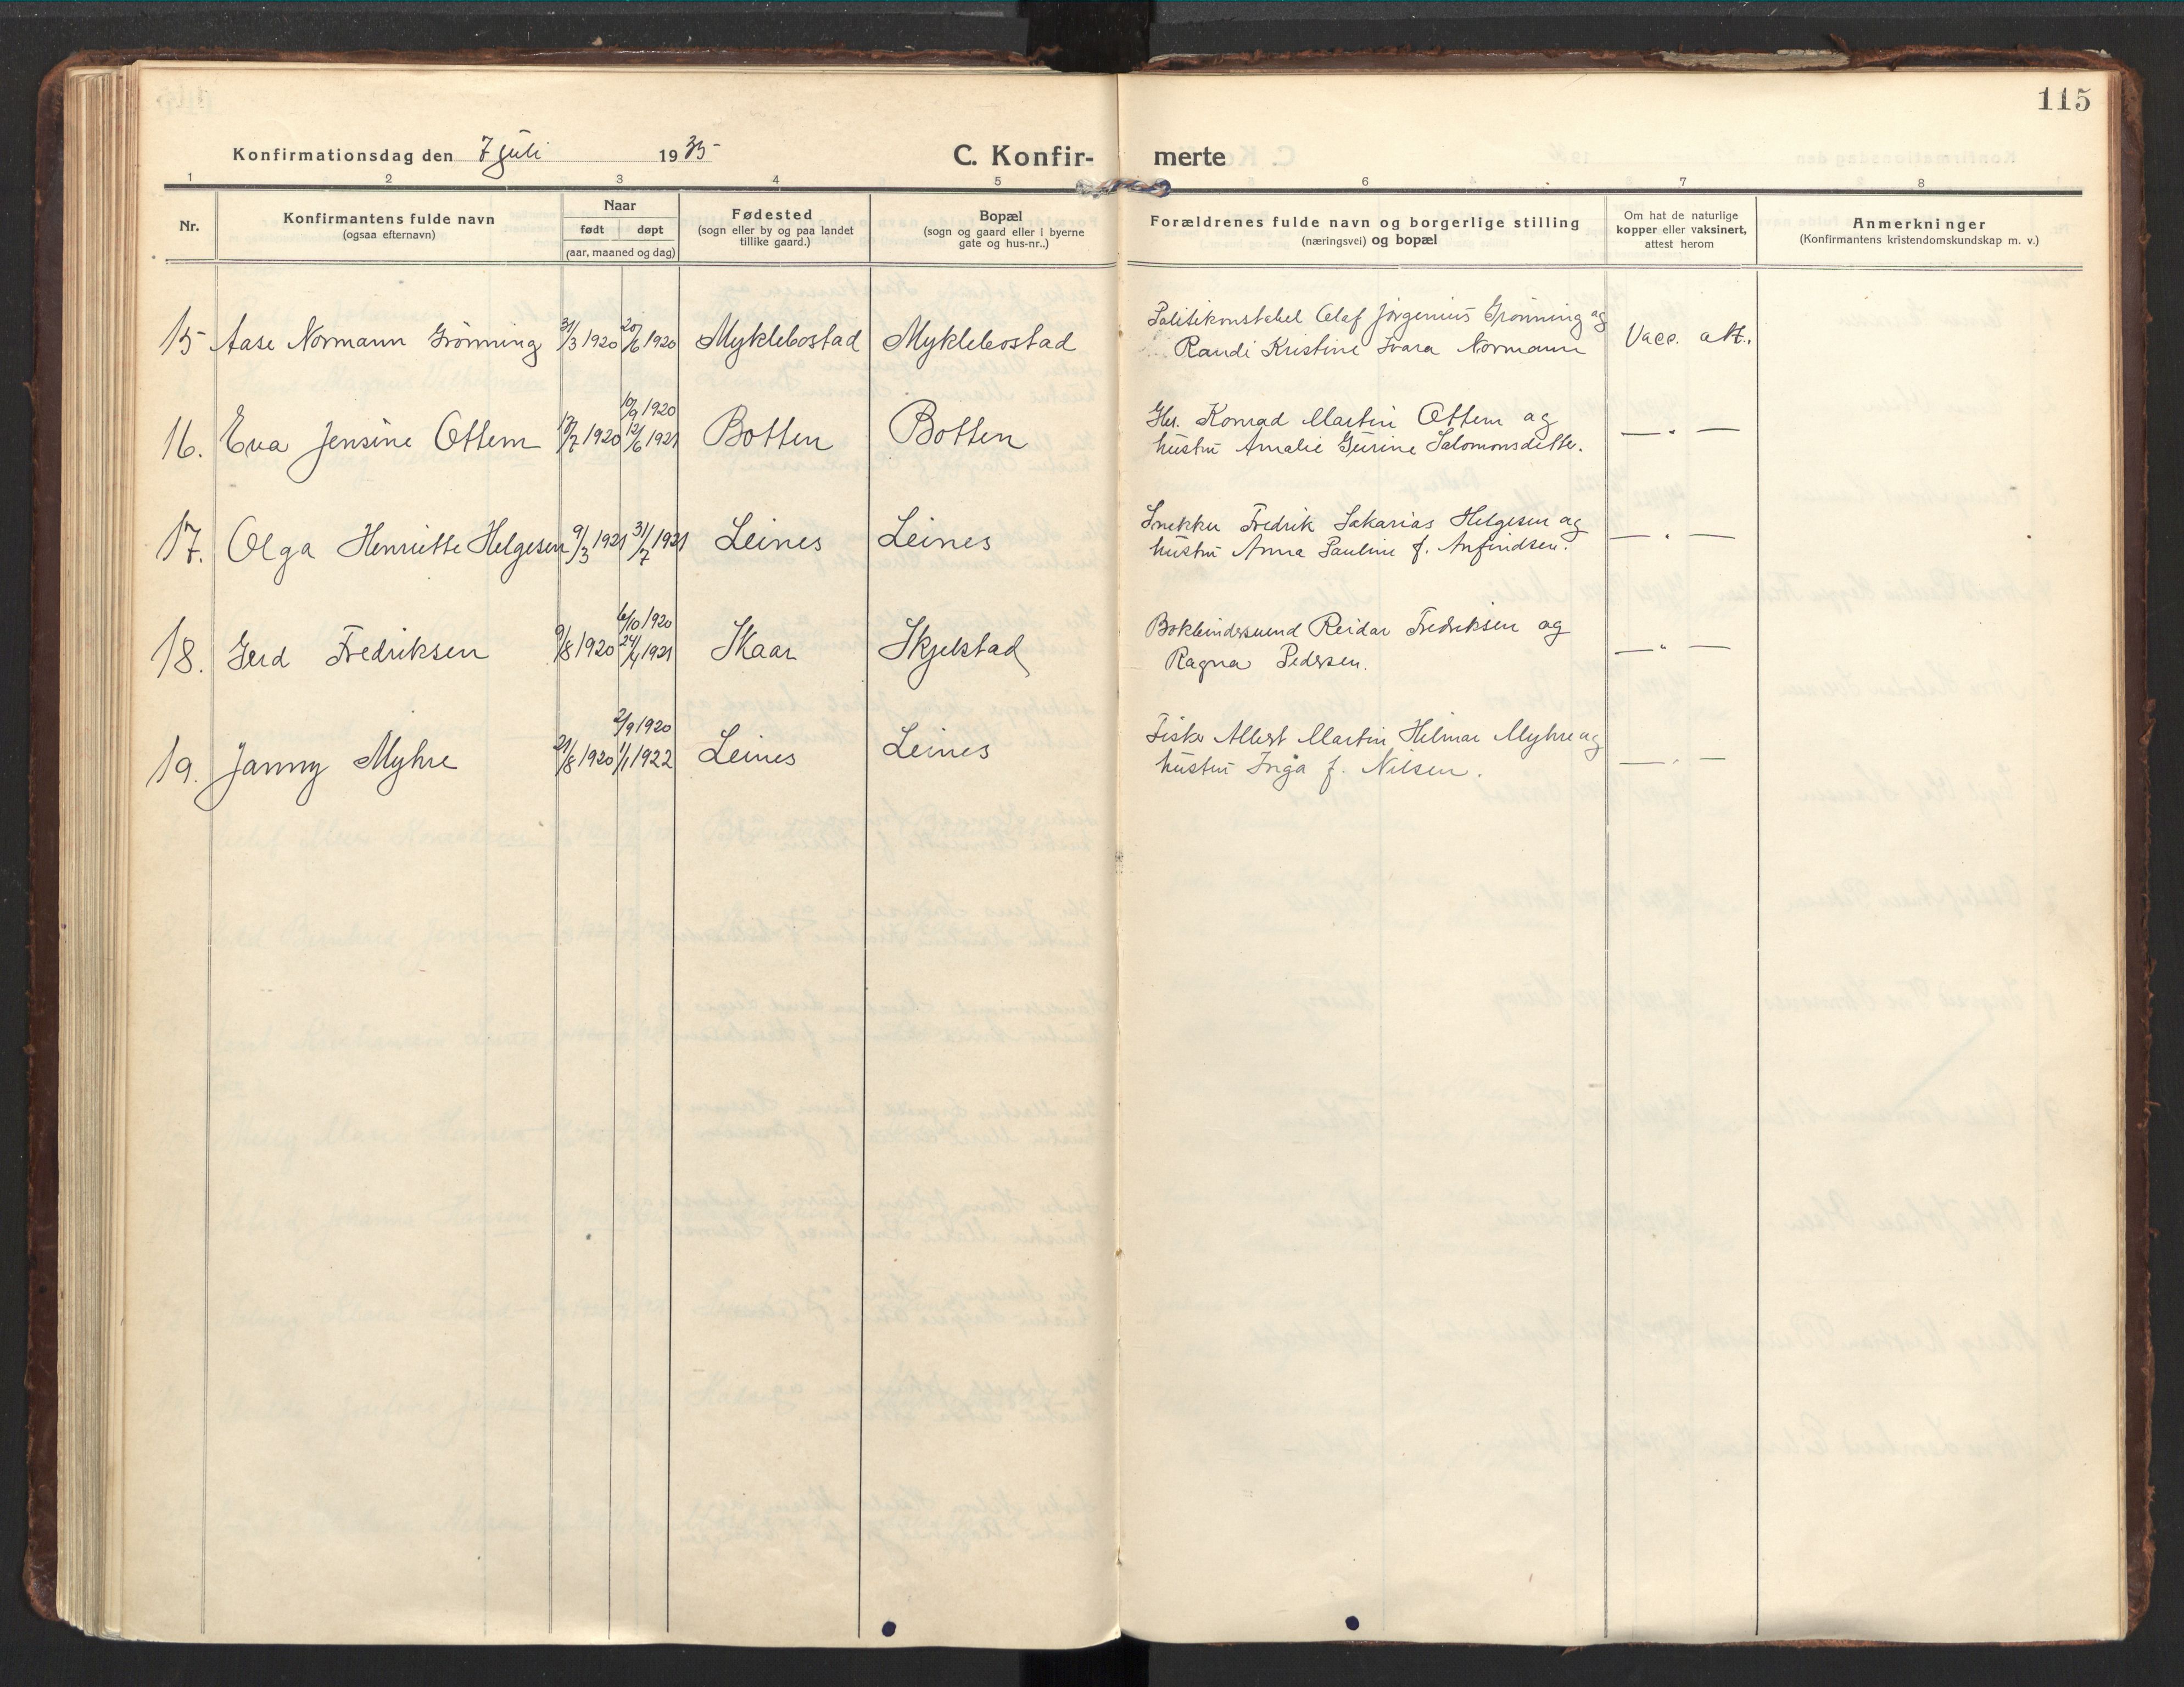 115
Konfirmationsdag den 7 juli 1935
C. Konfir-
merte
1 2 3 4 5 6 7 8
Nr.
Konfirmantens fulde navn
(ogsaa efternavn)
Naar
født døpt
(aar, maaned og dag)
Fødested
(sogn eller by og paa landet
tillike gaard.)
Bopæl
(sogn og gaard eller i byerne
gate og hus-nr..)
Forældrenes fulde navn og borgerlige stilling
(næringsvei) og bopæl
Om hat de naturlige
kopper eller vaksinert,
attest herom
Anmerkninger
(Konfirmantens kristendomskundskap m. v.)
15 Aase Normann Grönning 31/3 1920 20/6 1920 Myklebostad Myklebostad
Politikonstabel Olaf Jörgenius Grönning og
Randi Kristine Ivara Normann
Vacc. att.
16. Eva Jensine Ottem 19/7 1920 10/9 1920
12/6 1921 Botten Botten
Gbr. Konrad Martin Ottem og
hustru Amalie Gurine Salomonsdetter.
— " —
17. Olga Henriette Helgesen 9/3 1921 31/7 1921 Leines Leines
Snekker Fredrik Sakarias Helgesen og
hustru Anna Pauline f. Anfindsen.
— " —
18. Gerd Fredriksen 9/8 1920 6/10 1920
24/4 1921 Skaar Skjelstad
Bokbindersvend Reidar Fredriksen og
Ragna Pedersen.
— " —
19. Janny Myhre 21/8 1920 2/9 1920
1/1 1922 Leines Leines
Fisker Albert Martin Hilmar Myhre og
hustru Inga f. Nilsen.
— " —